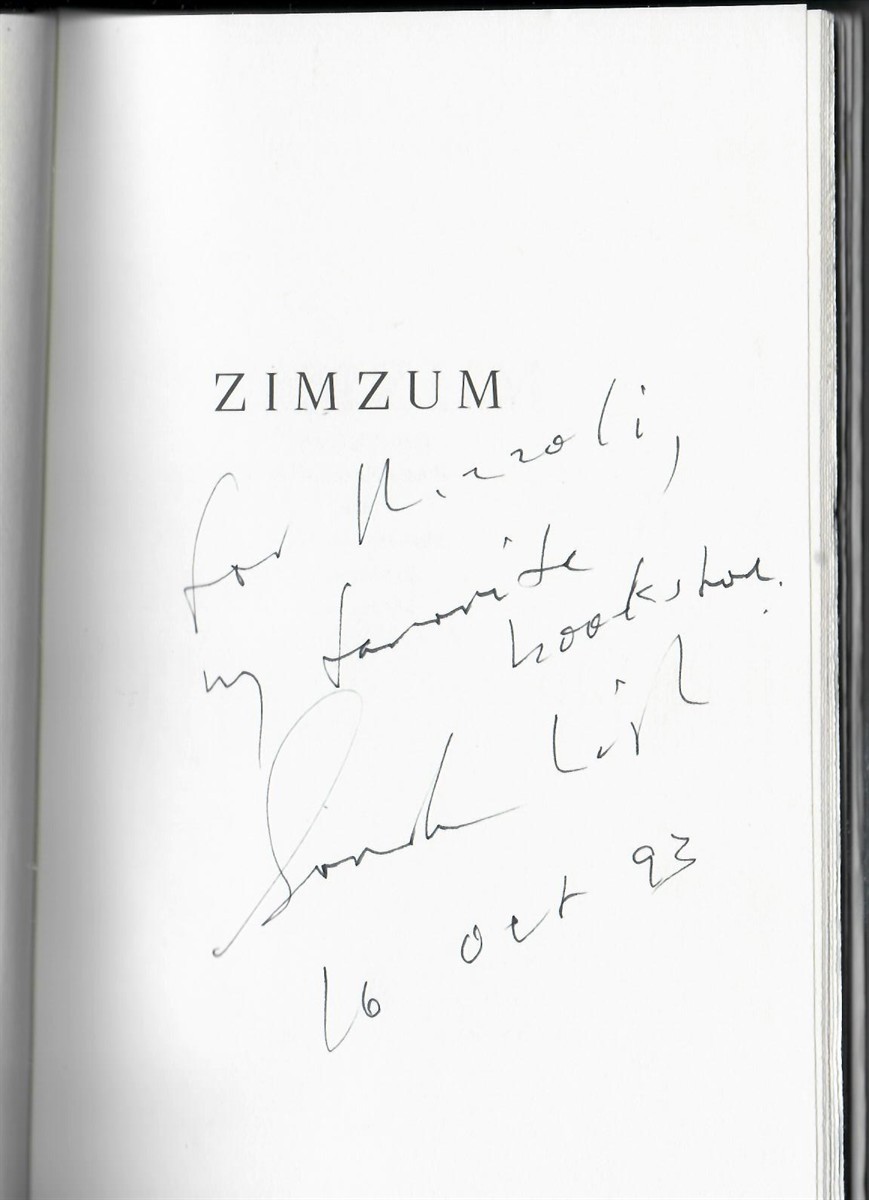 ZIMZUM
for Rizzoli,
my favorite
bookstore.
Gordon Lish
16 Oct 93